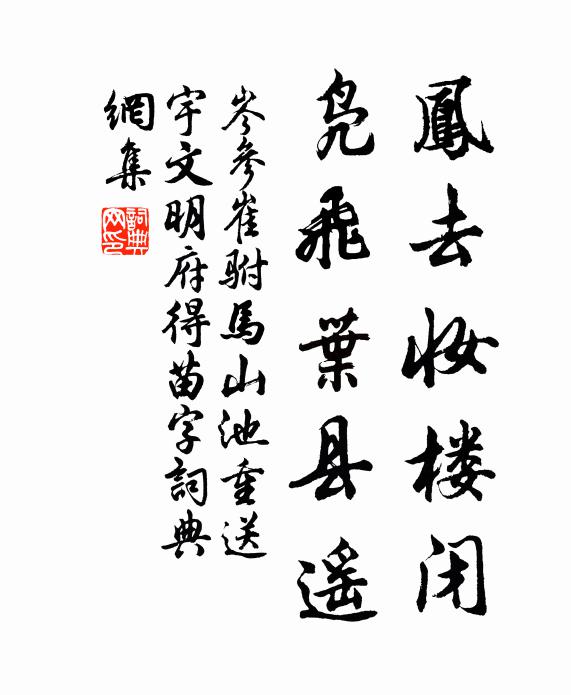 鳳去妆楼闭
凫飛葉县遥
岑參崔駙馬山池重送
宇文明府得苗字詞典
網集
詞典网印